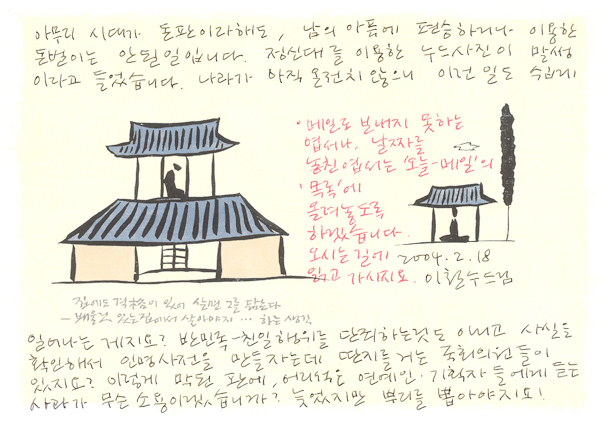 아무리 시대가 돈판이라해도, 남의 아픔에 편승하거나 이용한
돈벌이는 안될일입니다. 정신대를 이용한 누드사진이 말썽
이라고 들었습니다. 나라가 아직 온전치 않으니 이런 일도 쉽게
·메일로 보내지 못하는
엽서나, 날짜를
놓친 엽서는 '오늘-메일'의
'목록'에
올려놓도록
하겠습니다.
오시는길에
읽고 가시지요.
2004. 2. 18
이철수드림
집에도 격 있어 살면 그를 닮는다
- 배울것 있는집에서 살아야지 … 하는 생각
일어나는 게지요? 반민족-친일행위를 단죄하는것도 아니고 사실을
확인해서 인명사전을 만들자는데 딴지를거는 국회의원들이
있지요? 이렇게 막된 판에, 어리석은 연예인·기획자들에게 듣는
사과가 무슨 소용이겠습니까? 늦었지만 뿌리를 뽑아야지요!